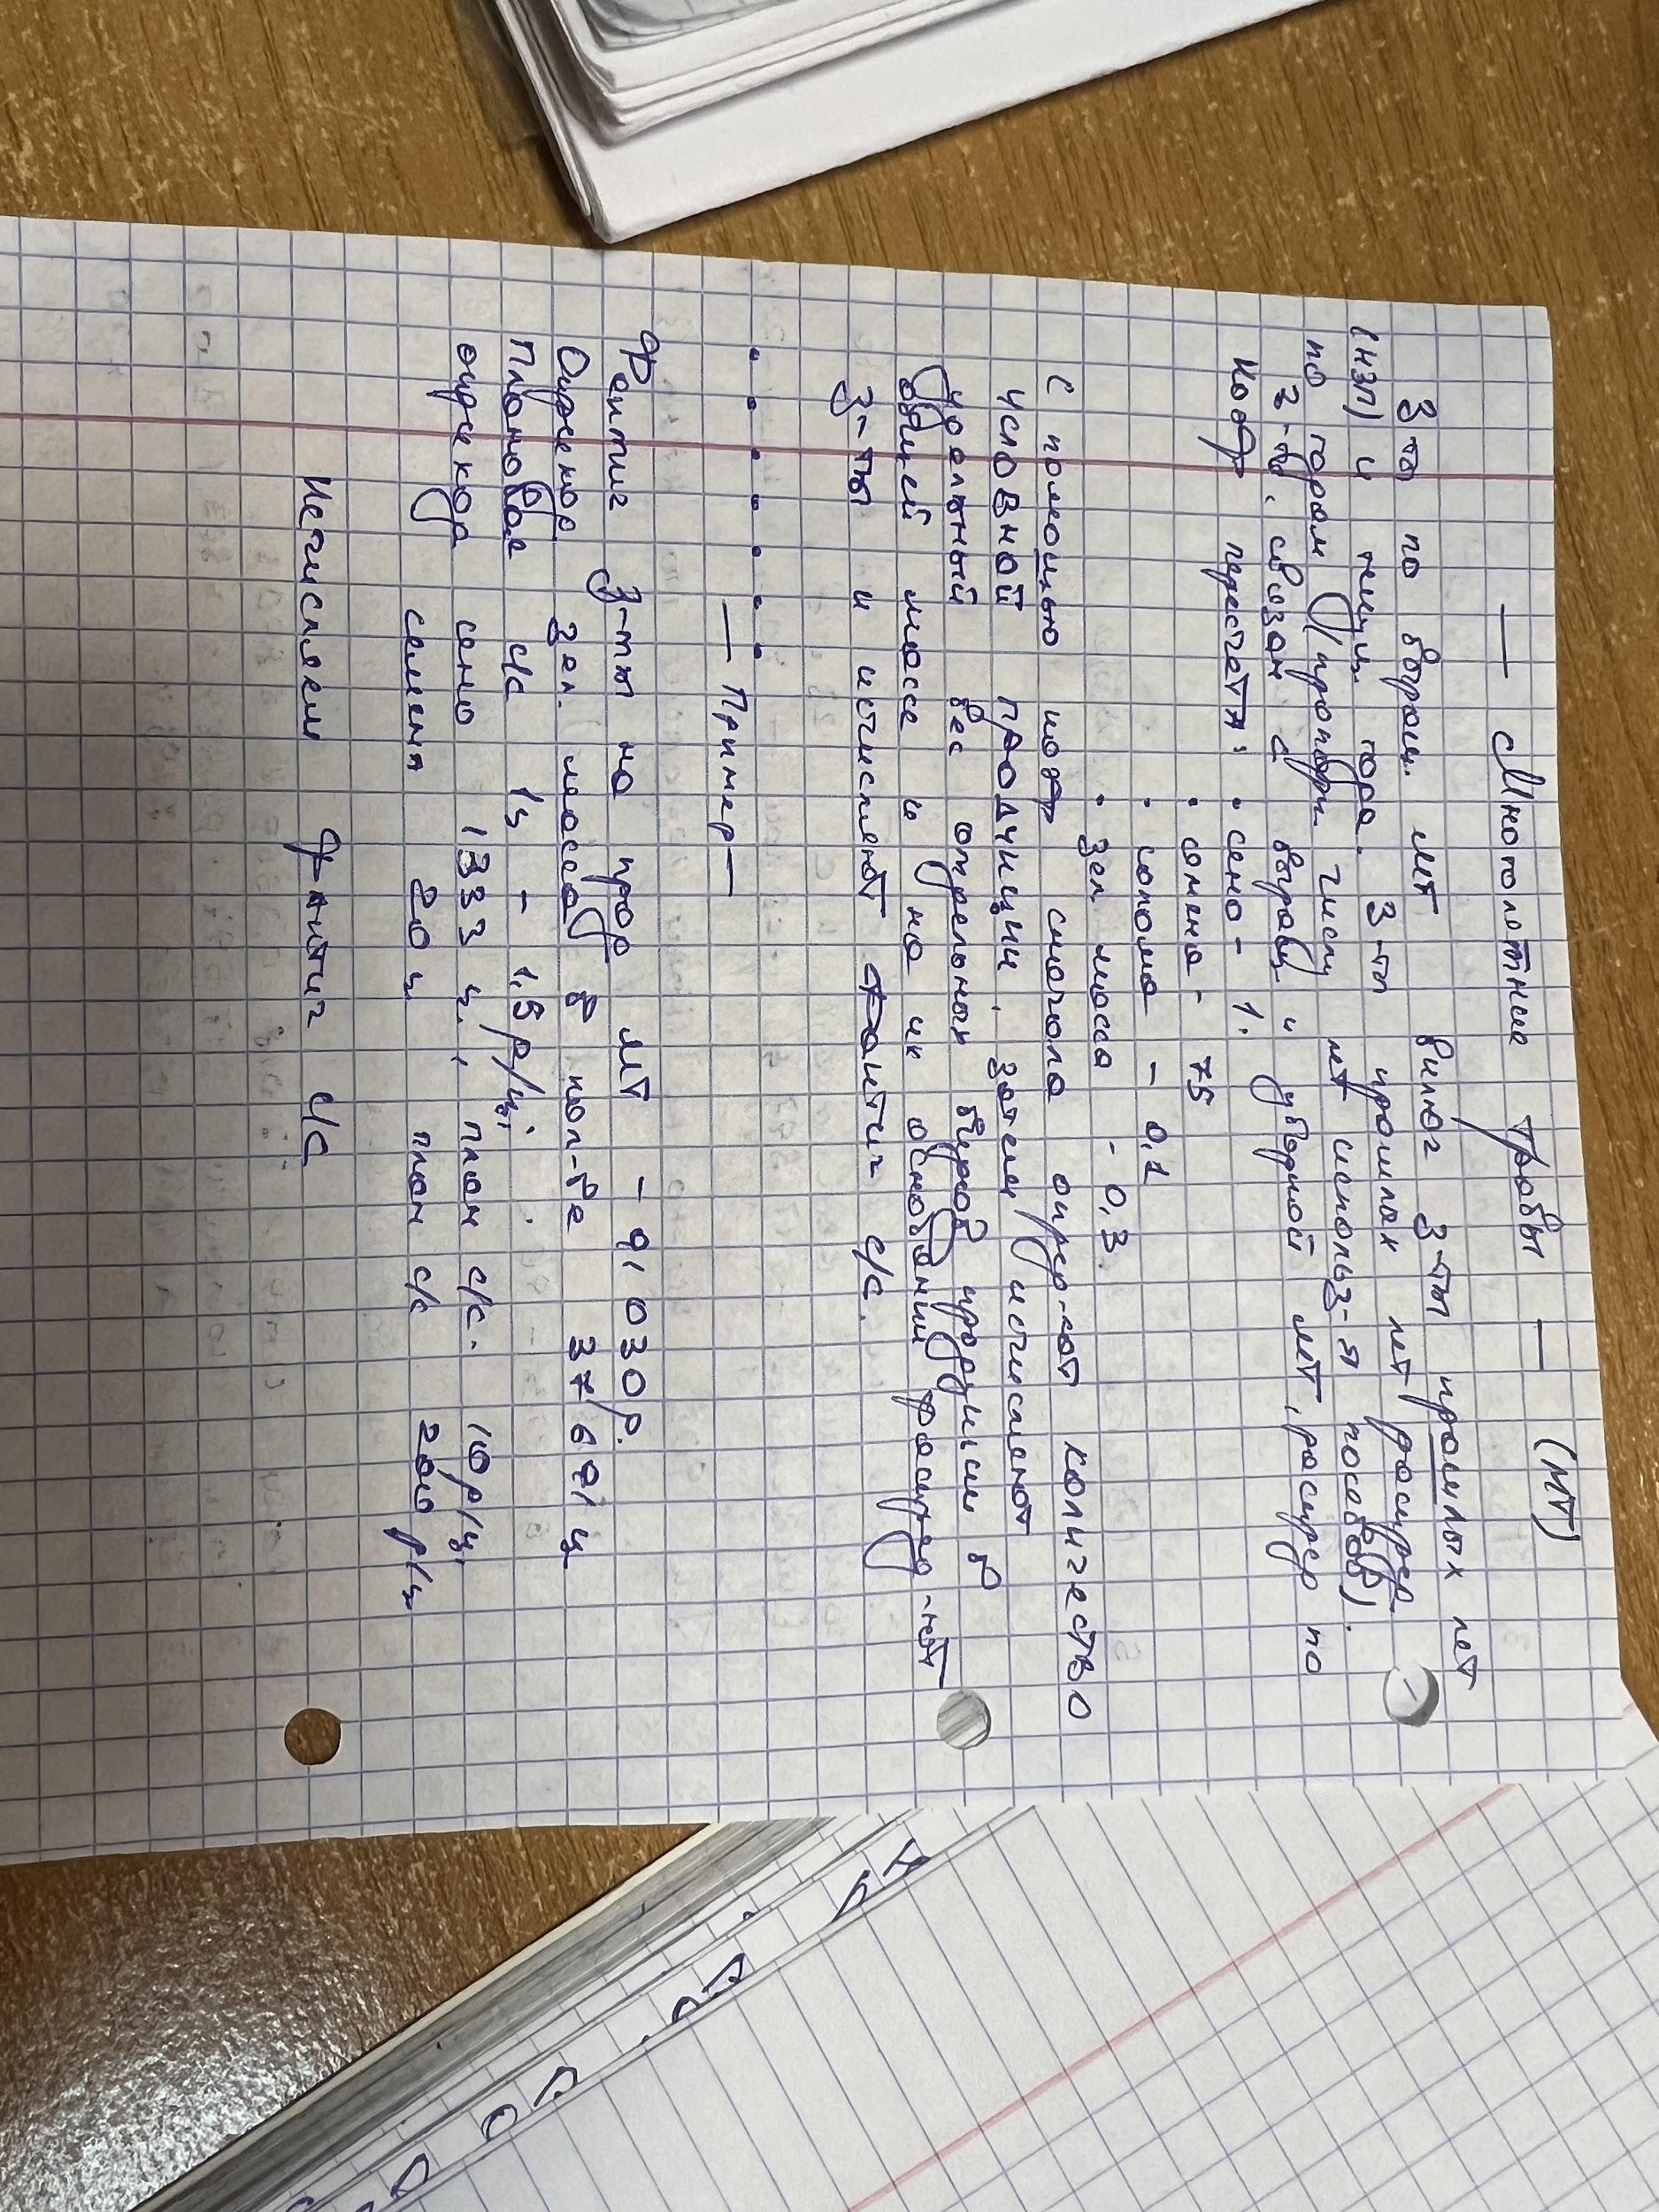 — Многолетние травы — (МТ)
З-ты по выращ. МТ включ з-ты прошлых лет
(НЗП) и текущ. года. З-ты прошлых лет распред.
по годам (пропорц. числу лет использ-я посевов).
З-ты, связан с выращ и уборкой МТ, распред по
коэф пересчета: • сено - 1.
• семена - 75
• солома - 0,1
• зел масса - 0,3.
С помощью коэф сначала опред-ют количество
условной продукции. Затем исчисляют
удельный вес отдельных видов продукции в
общей массе и на их основании распред-ют
з-ты и исчисляют фактич с/с.
— Пример —
Фактич з-ты на прод МТ - 91 030р.
Оприход зел. масса в кол-ве 37 691 ц
Плановая с/с 1ц - 1,5 р/ц;
оприход сено 1333 ц., план с/с. 10 р/ц,
семена 20 ц план с/с 200 р/ц
Исчисляем фактич с/с